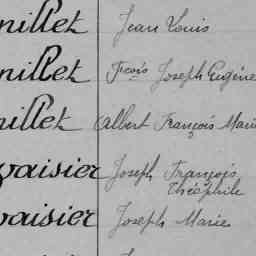 nillet Jean Louis
nillet Fcois Joseph Eugène
nillet Albert François Marie
vaisier Joseph François
Théophile
vaisier Joseph Marie